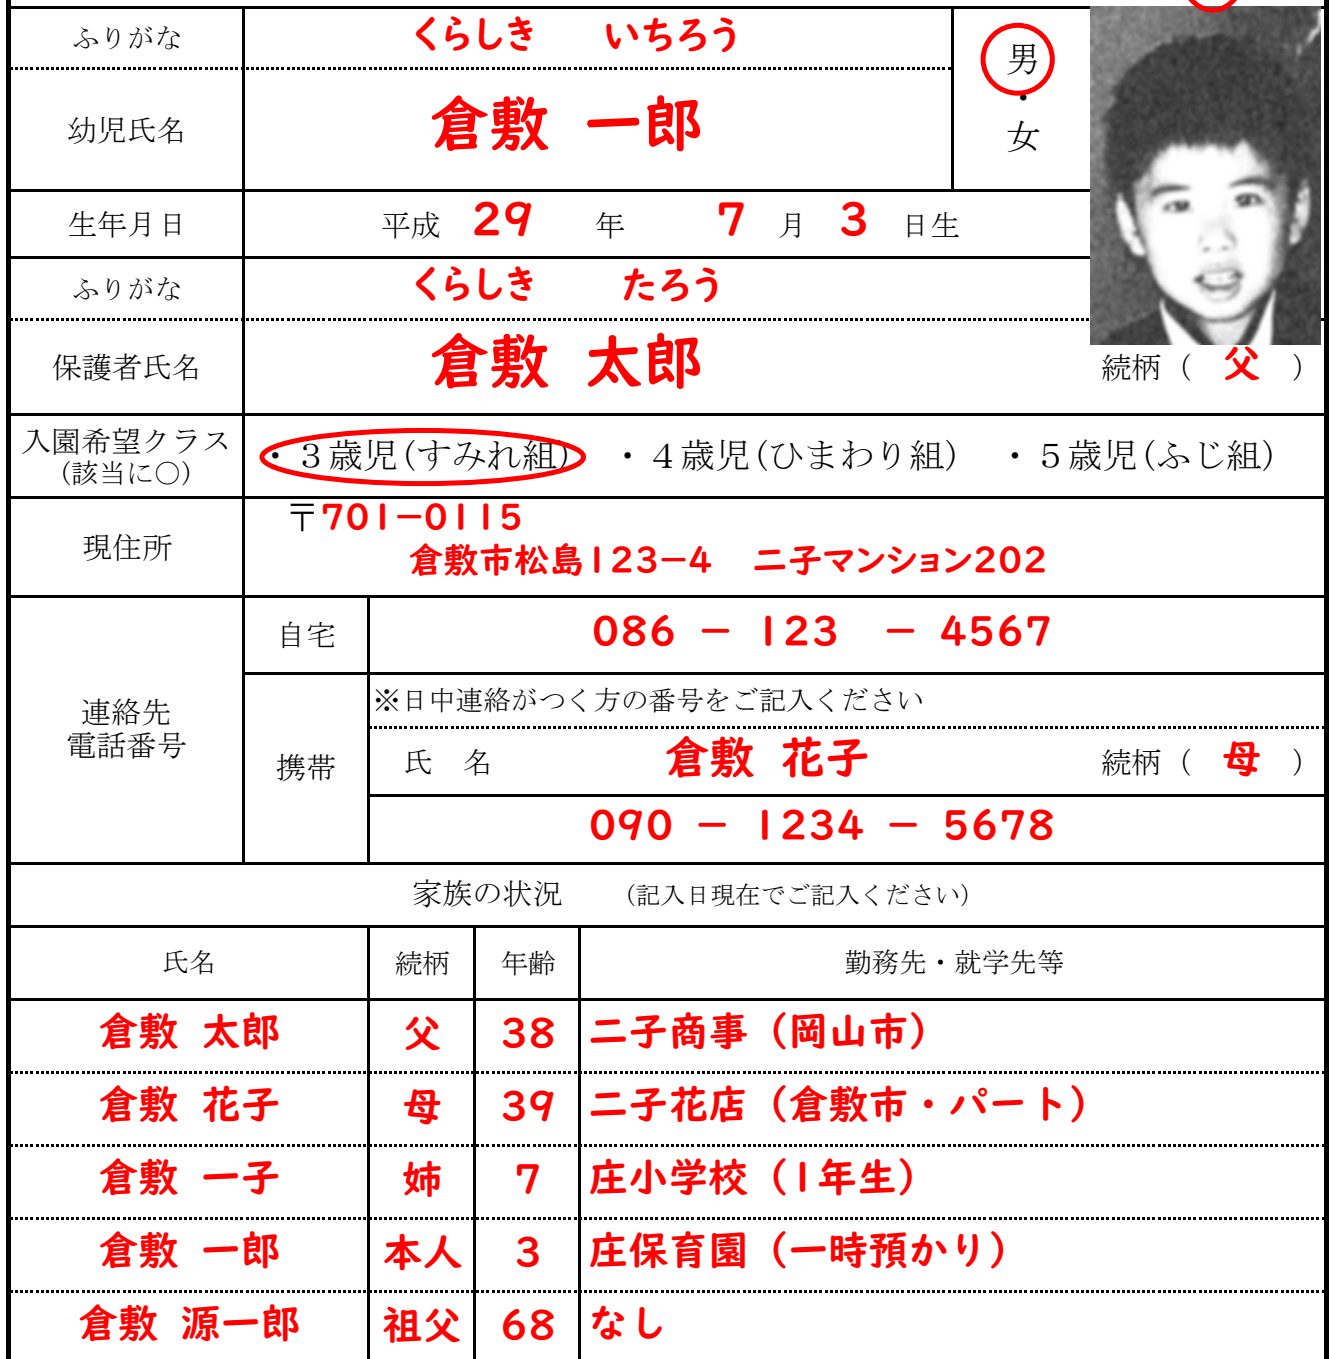 ふりがな くらしき いちろう
幼児氏名 倉敷 一郎
男・女
生年月日 平成 29 年 7 月 3 日生
ふりがな くらしき たろう
保護者氏名 倉敷 太郎 続柄（ 父 ）
入園希望クラス
(該当に○)
・３歳児(すみれ組) ・４歳児(ひまわり組) ・５歳児(ふじ組)
現住所
〒701－0115
倉敷市松島123－4 二子マンション202
連絡先
電話番号
自宅 086 － 123 － 4567
携帯
※日中連絡がつく方の番号をご記入ください
氏 名 倉敷 花子 続柄（ 母 ）
090 － 1234 － 5678
家族の状況 （記入日現在でご記入ください）
氏名 続柄 年齢 勤務先・就学先等
倉敷 太郎 父 38 二子商事（岡山市）
倉敷 花子 母 39 二子花店（倉敷市・パート）
倉敷 一子 姉 7 庄小学校（1年生）
倉敷 一郎 本人 3 庄保育園（一時預かり）
倉敷 源一郎 祖父 68 なし